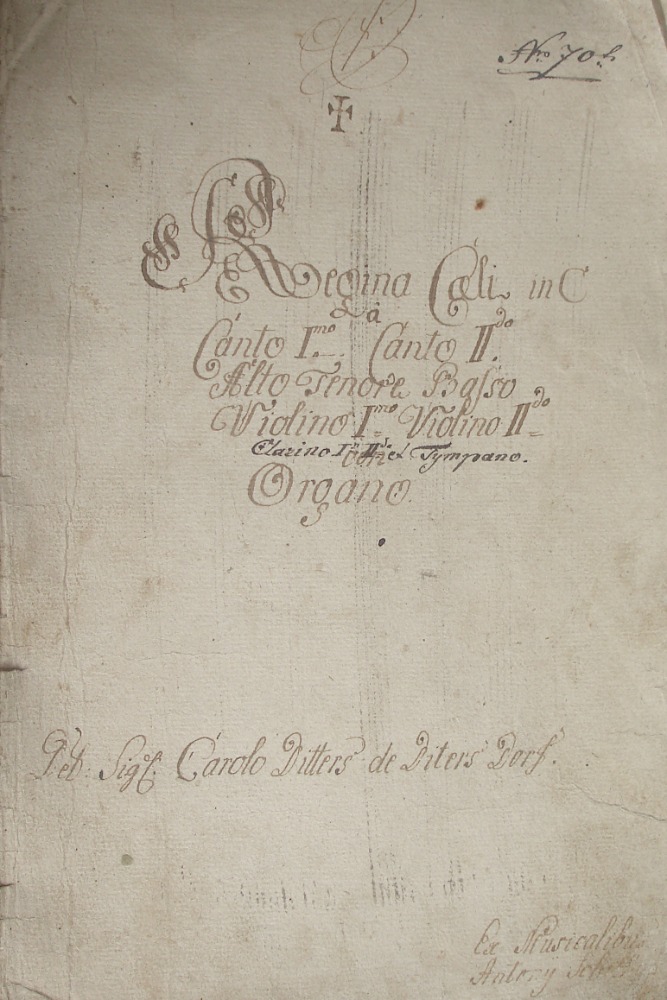 Nro 70
Regina Cæli in C
à
Canto I.mo Canto II.do
Alto Tenore Basso
Violino I.mo Violino II.do
Clarino I.o II.do et Tympano.
con
Organo.
Del: Sigl: Carolo Ditters de Diters Dorf.
Ex Musicalibus
Antony